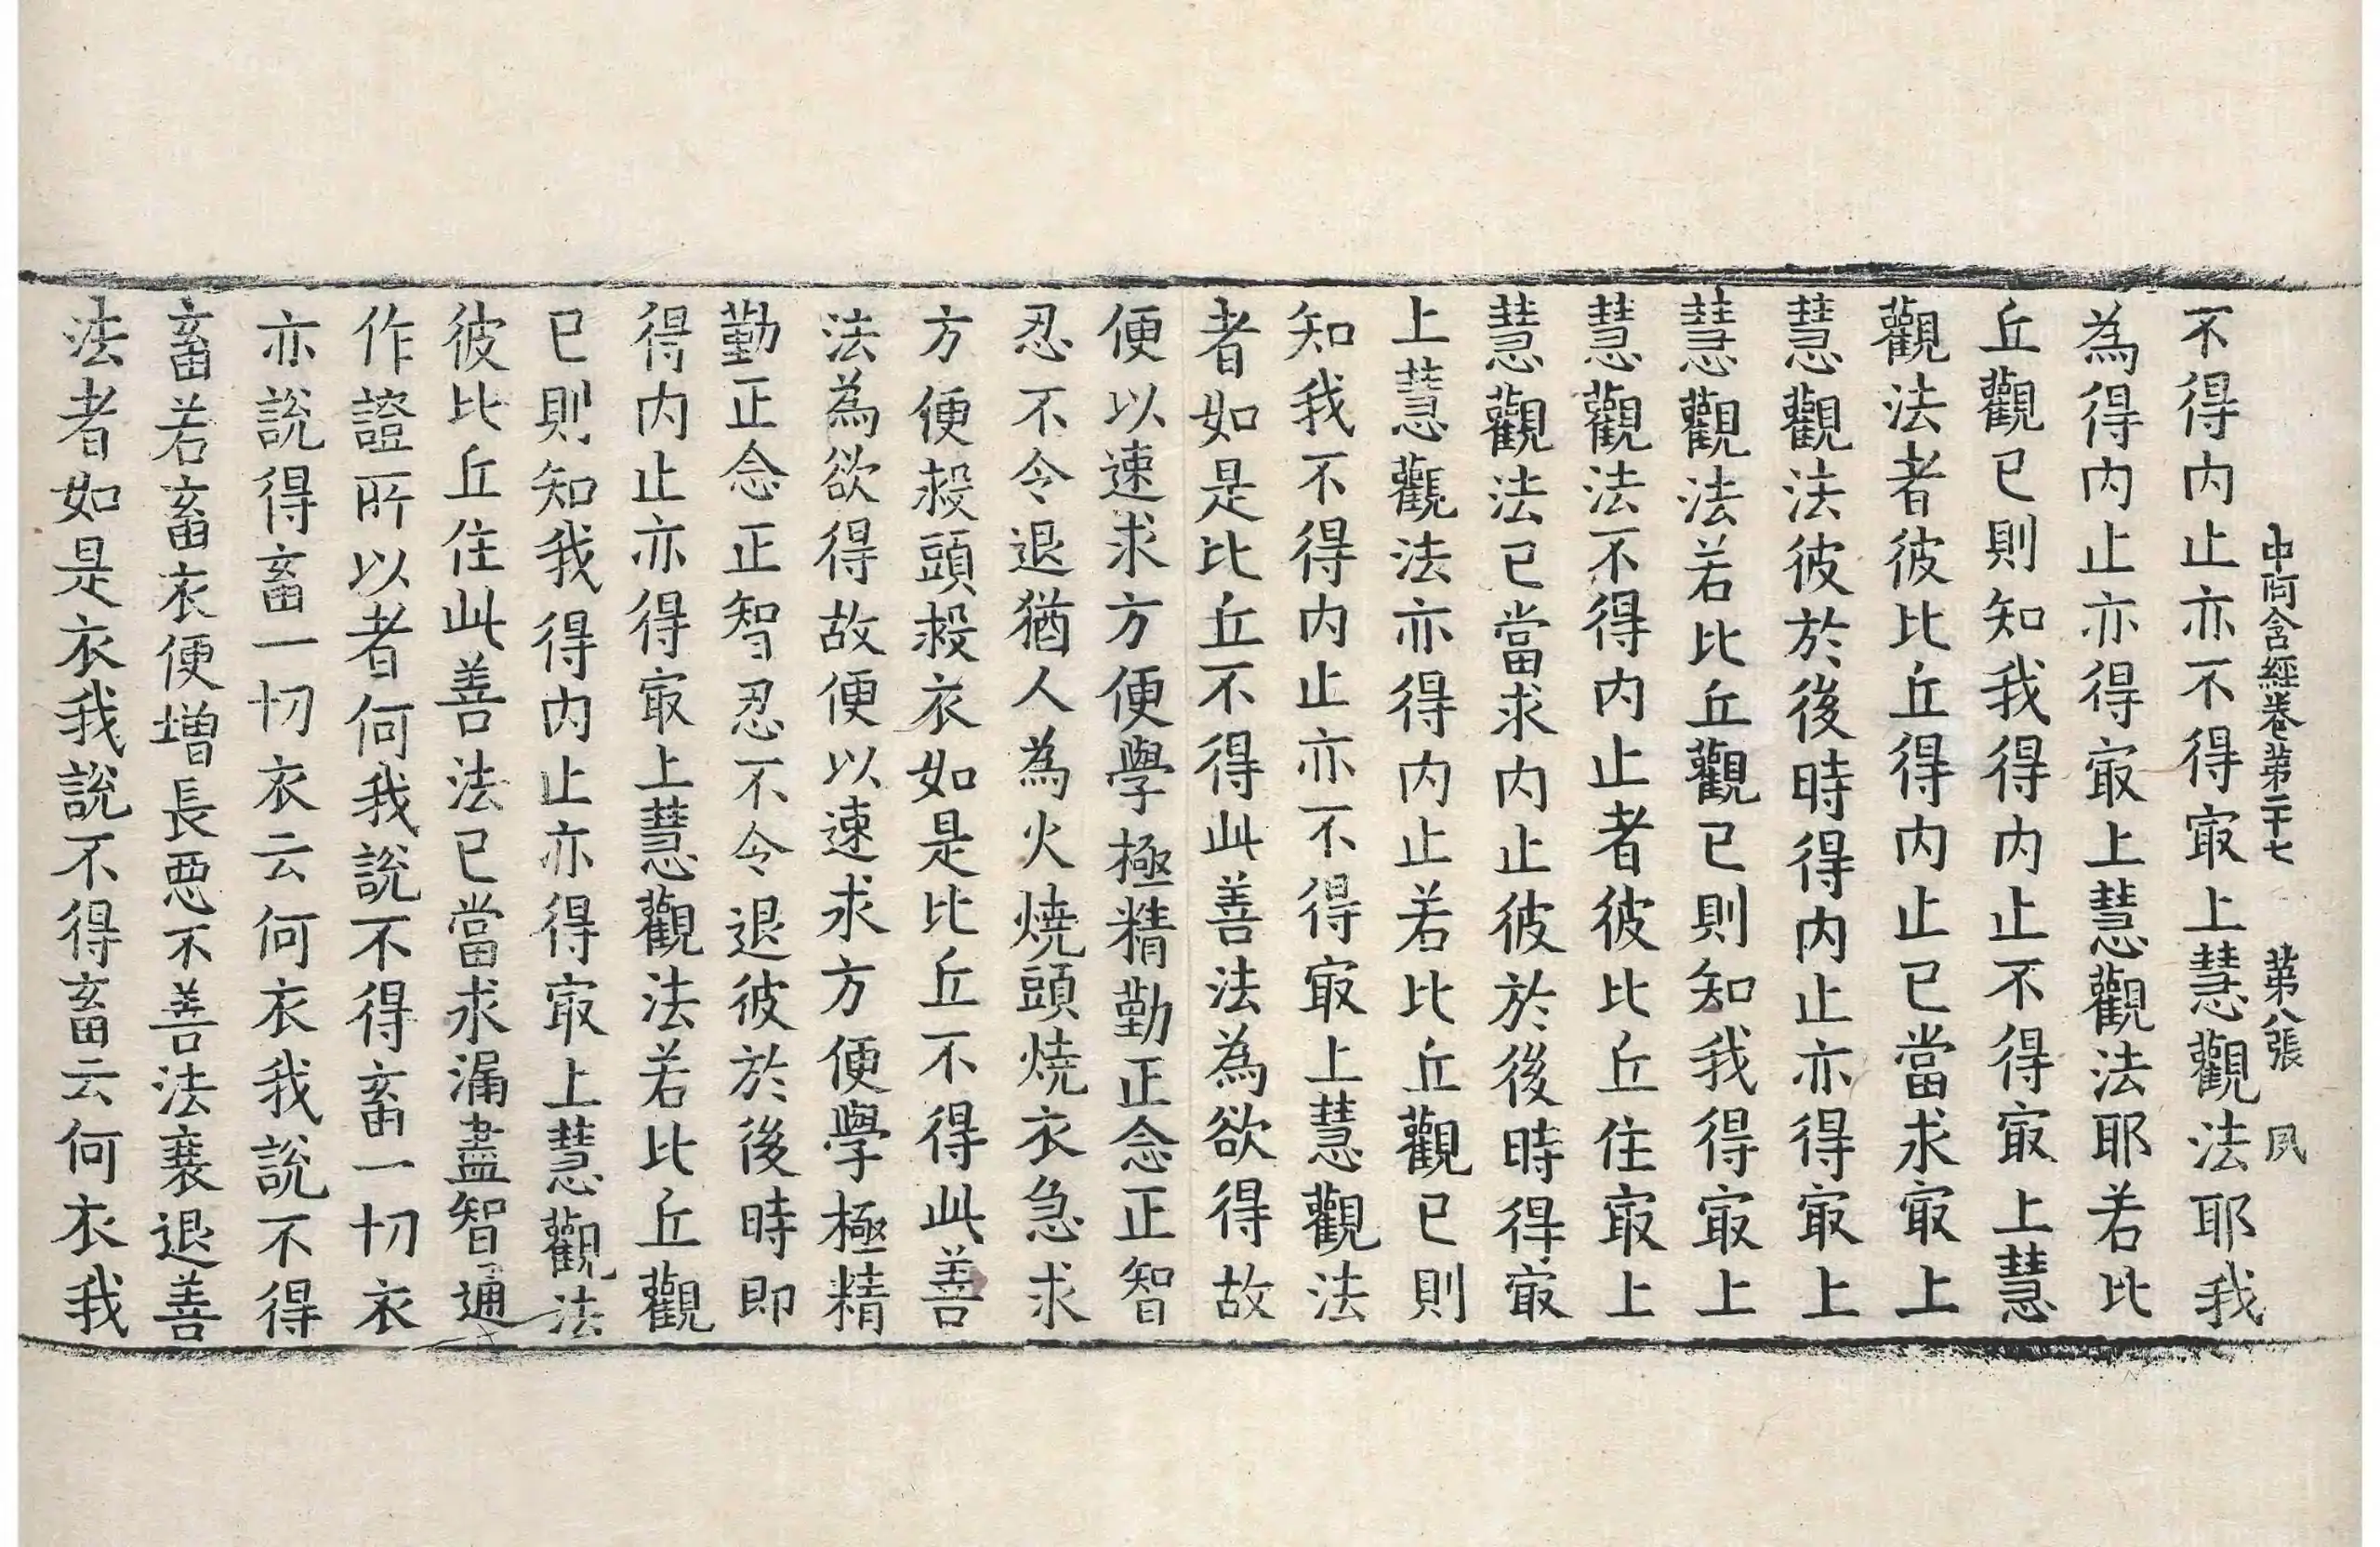 中阿含經卷第二十七　第八張　夙
不得内止亦不得㝡上慧觀法耶我
為得内止亦得㝡上慧觀法耶若比
丘觀已則知我得内止不得㝡上慧
觀法者彼比丘得内止已當求㝡上
慧觀法彼於後時得内止亦得㝡上
慧觀法若比丘觀已則知我得㝡上
慧觀法不得内止者彼比丘住㝡上
慧觀法已當求内止彼於後時得㝡
上慧觀法亦得内止若比丘觀已則
知我不得内止亦不得㝡上慧觀法
者如是比丘不得此善法為欲得故
便以速求方便學極精勤正念正智
忍不令退猶人為火燒頭燒衣急求
方便救頭救衣如是比丘不得此善
法為欲得故便以速求方便學極精
勤正念正智忍不令退彼於後時即
得内止亦得㝡上慧觀法若比丘觀
已則知我得内止亦得㝡上慧觀法
彼比丘住此善法已當求漏盡智通
作證所以者何我說不得畜一切衣
亦說得畜一切衣云何衣我說不得
畜若畜衣便增長惡不善法衰退善
法者如是衣我說不得畜云何衣我